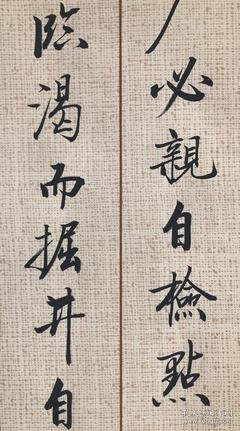 必親自檢點
臨渴而掘井自